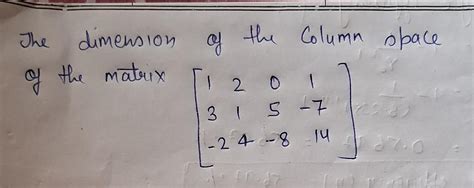 The dimension of the Column space
of the matrix [1 2 0 1
3 1 5 -7
-2 4 -8 14]